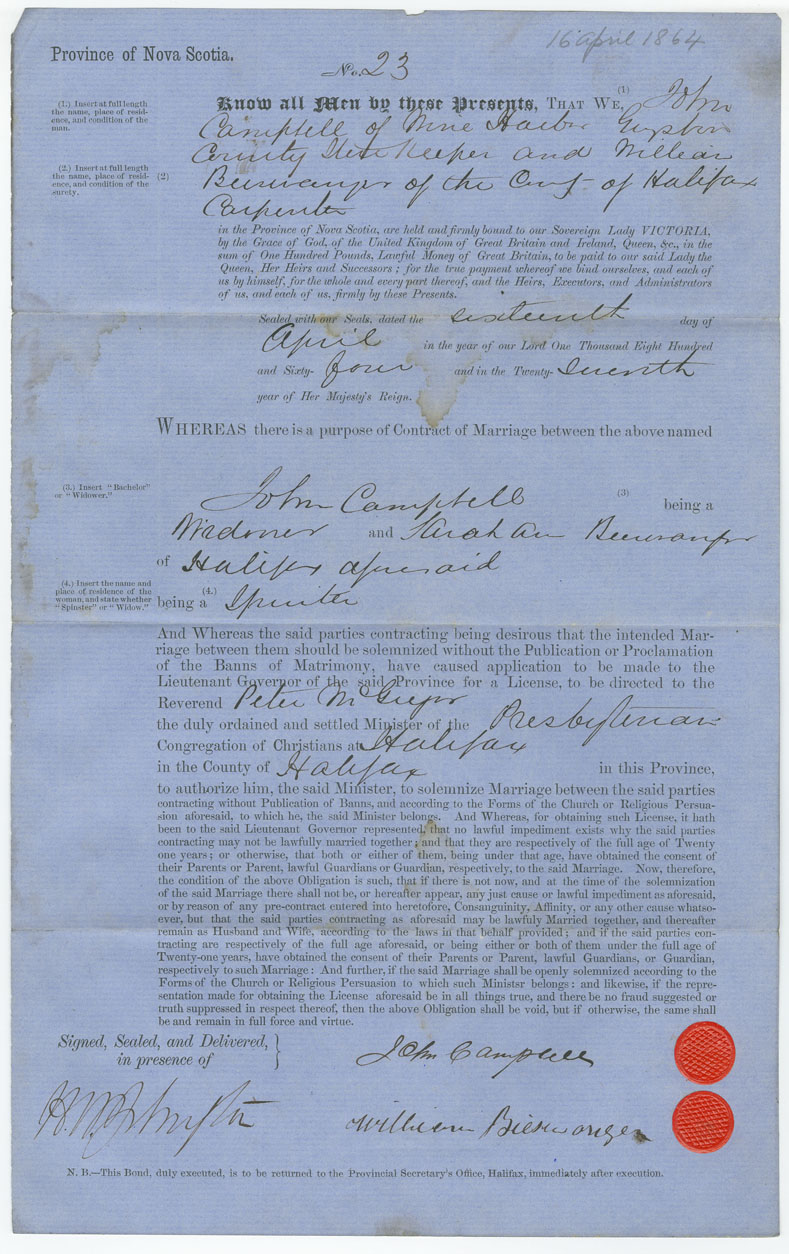 16 april 1864
Province of Nova Scotia.
No. 23
(1.) Insert at full length
the name, place of resid-
ence, and condition of the
man.
Know all Men by these Presents, THAT WE, (1) John
Campbell of Wine Harbor Guysboro
County Store Keeper and William
(2.) Insert at full length
the name, place of resid-
ence, and condition of the
surety.
(2) of the County of Halifax
Carpenter
in the Province of Nova Scotia, are held and firmly bound to our Sovereign Lady VICTORIA,
by the Grace of God, of the United Kingdom of Great Britain and Ireland, Queen, &c., in the
sum of One Hundred Pounds, Lawful Money of Great Britain, to be paid to our said Lady the
Queen, Her Heirs and Successors; for the true payment whereof we bind ourselves, and each of
us by himself, for the whole and every part thereof, and the Heirs, Executors, and Administrators
of us, and each of us, firmly by these Presents.
Sealed with our Seals, dated the sixteenth day of
April in the year of our Lord One Thousand Eight Hundred
and Sixty- four and in the Twenty- Seventh
year of Her Majesty's Reign.
WHEREAS there is a purpose of Contract of Marriage between the above named
(3.) Insert "Bachelor"
or "Widower."
John Campbell (3) being a
Widower and Sarah Ann
of Halifax aforesaid
(4.) Insert the name and
place of residence of the
woman, and state whether
"Spinster" or "Widow."
being a (4.) Spinster
And Whereas the said parties contracting being desirous that the intended Mar-
riage between them should be solemnized without the Publication or Proclamation
of the Banns of Matrimony, have caused application to be made to the
Lieutenant Governor of the said Province for a License, to be directed to the
Reverend Peter McGregor
the duly ordained and settled Minister of the Presbyterian
Congregation of Christians at Halifax
in the County of Halifax in this Province,
to authorize him, the said Minister, to solemnize Marriage between the said parties
contracting without Publication of Banns, and according to the Forms of the Church or Religious Persua-
sion aforesaid, to which he, the said Minister belongs. And Whereas, for obtaining such License, it hath
been to the said Lieutenant Governor represented, that no lawful impediment exists why the said parties
contracting may not be lawfully married together; and that they are respectively of the full age of Twenty
one years; or otherwise, that both or either of them, being under that age, have obtained the consent of
their Parents or Parent, lawful Guardians or Guardian, respectively, to the said Marriage. Now, therefore,
the condition of the above Obligation is such, that if there is not now, and at the time of the solemnization
of the said Marriage there shall not be, or hereafter appear, any just cause or lawful impediment as aforesaid,
or by reason of any pre-contract entered into heretofore, Consanguinity, Affinity, or any other cause whatso-
ever, but that the said parties contracting as aforesaid may be lawfuly Married together, and thereafter
remain as Husband and Wife, according to the laws in that behalf provided; and if the said parties con-
tracting are respectively of the full age aforesaid, or being either or both of them under the full age of
Twenty-one years, have obtained the consent of their Parents or Parent, lawful Guardians, or Guardian,
respectively to such Marriage: And further, if the said Marriage shall be openly solemnized according to the
Forms of the Church or Religious Persuasion to which such Ministsr belongs: and likewise, if the repre-
sentation made for obtaining the License aforesaid be in all things true, and there be no fraud suggested or
truth suppressed in respect thereof, then the above Obligation shall be void, but if otherwise, the same shall
be and remain in full force and virtue.
Signed, Sealed, and Delivered,
in presence of
John Campbell
William Bieswanger
N. B.—This Bond, duly executed, is to be returned to the Provincial Secretary's Office, Halifax, immediately after execution.